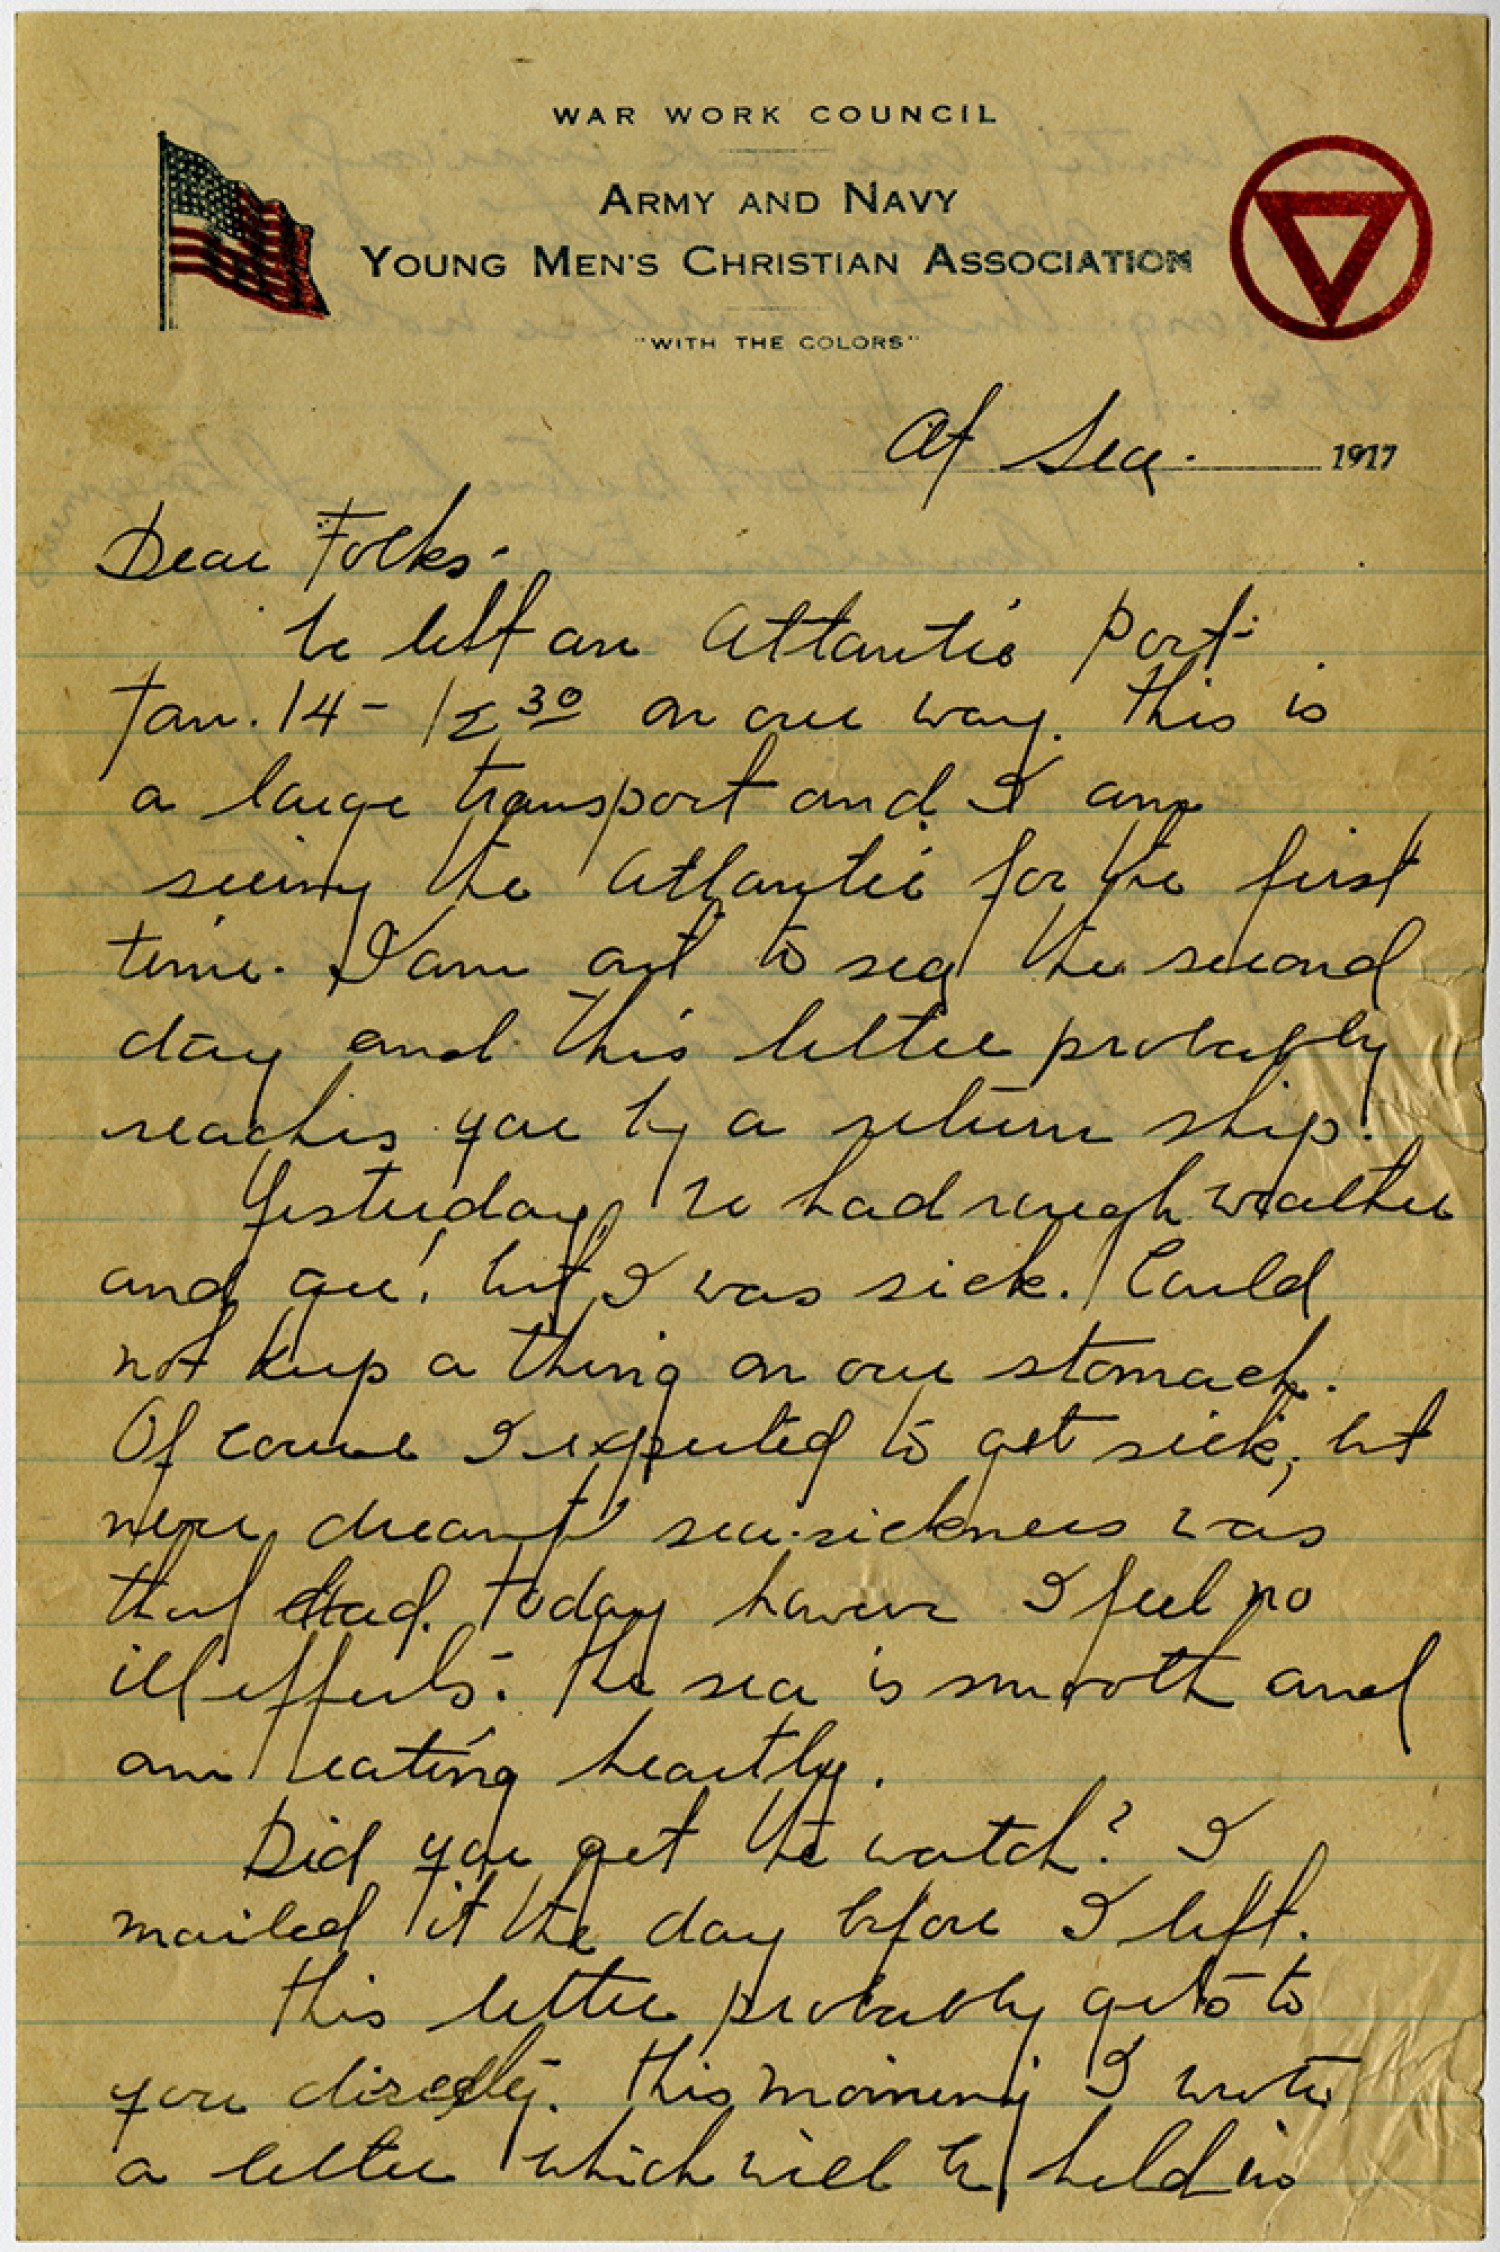 WAR WORK COUNCIL
ARMY AND NAVY
YOUNG MEN'S CHRISTIAN ASSOCIATION
"WITH THE COLORS"
At Sea. 1917
Dear Folks-
We left an Atlantic Port-
Jan. 14- 12 30 on our way. This is
a large transport and I am
seeing the Atlantic for the first
time. I am out to sea the second
day and this letter probably
reaches you by a return ship.
Yesterday we had rough weather
and gee! but I was sick. Could
not keep a thing on our stomach.
Of course I expected to get sick, but
never dreamt sea-sickness was
that bad. Today however I feel no
ill effects. The sea is smooth and
am eating heartly.
Did you get the watch? I
mailed it the day before I left.
This letter probably gets to
you directly. This morning I wrote
a letter which will be held in